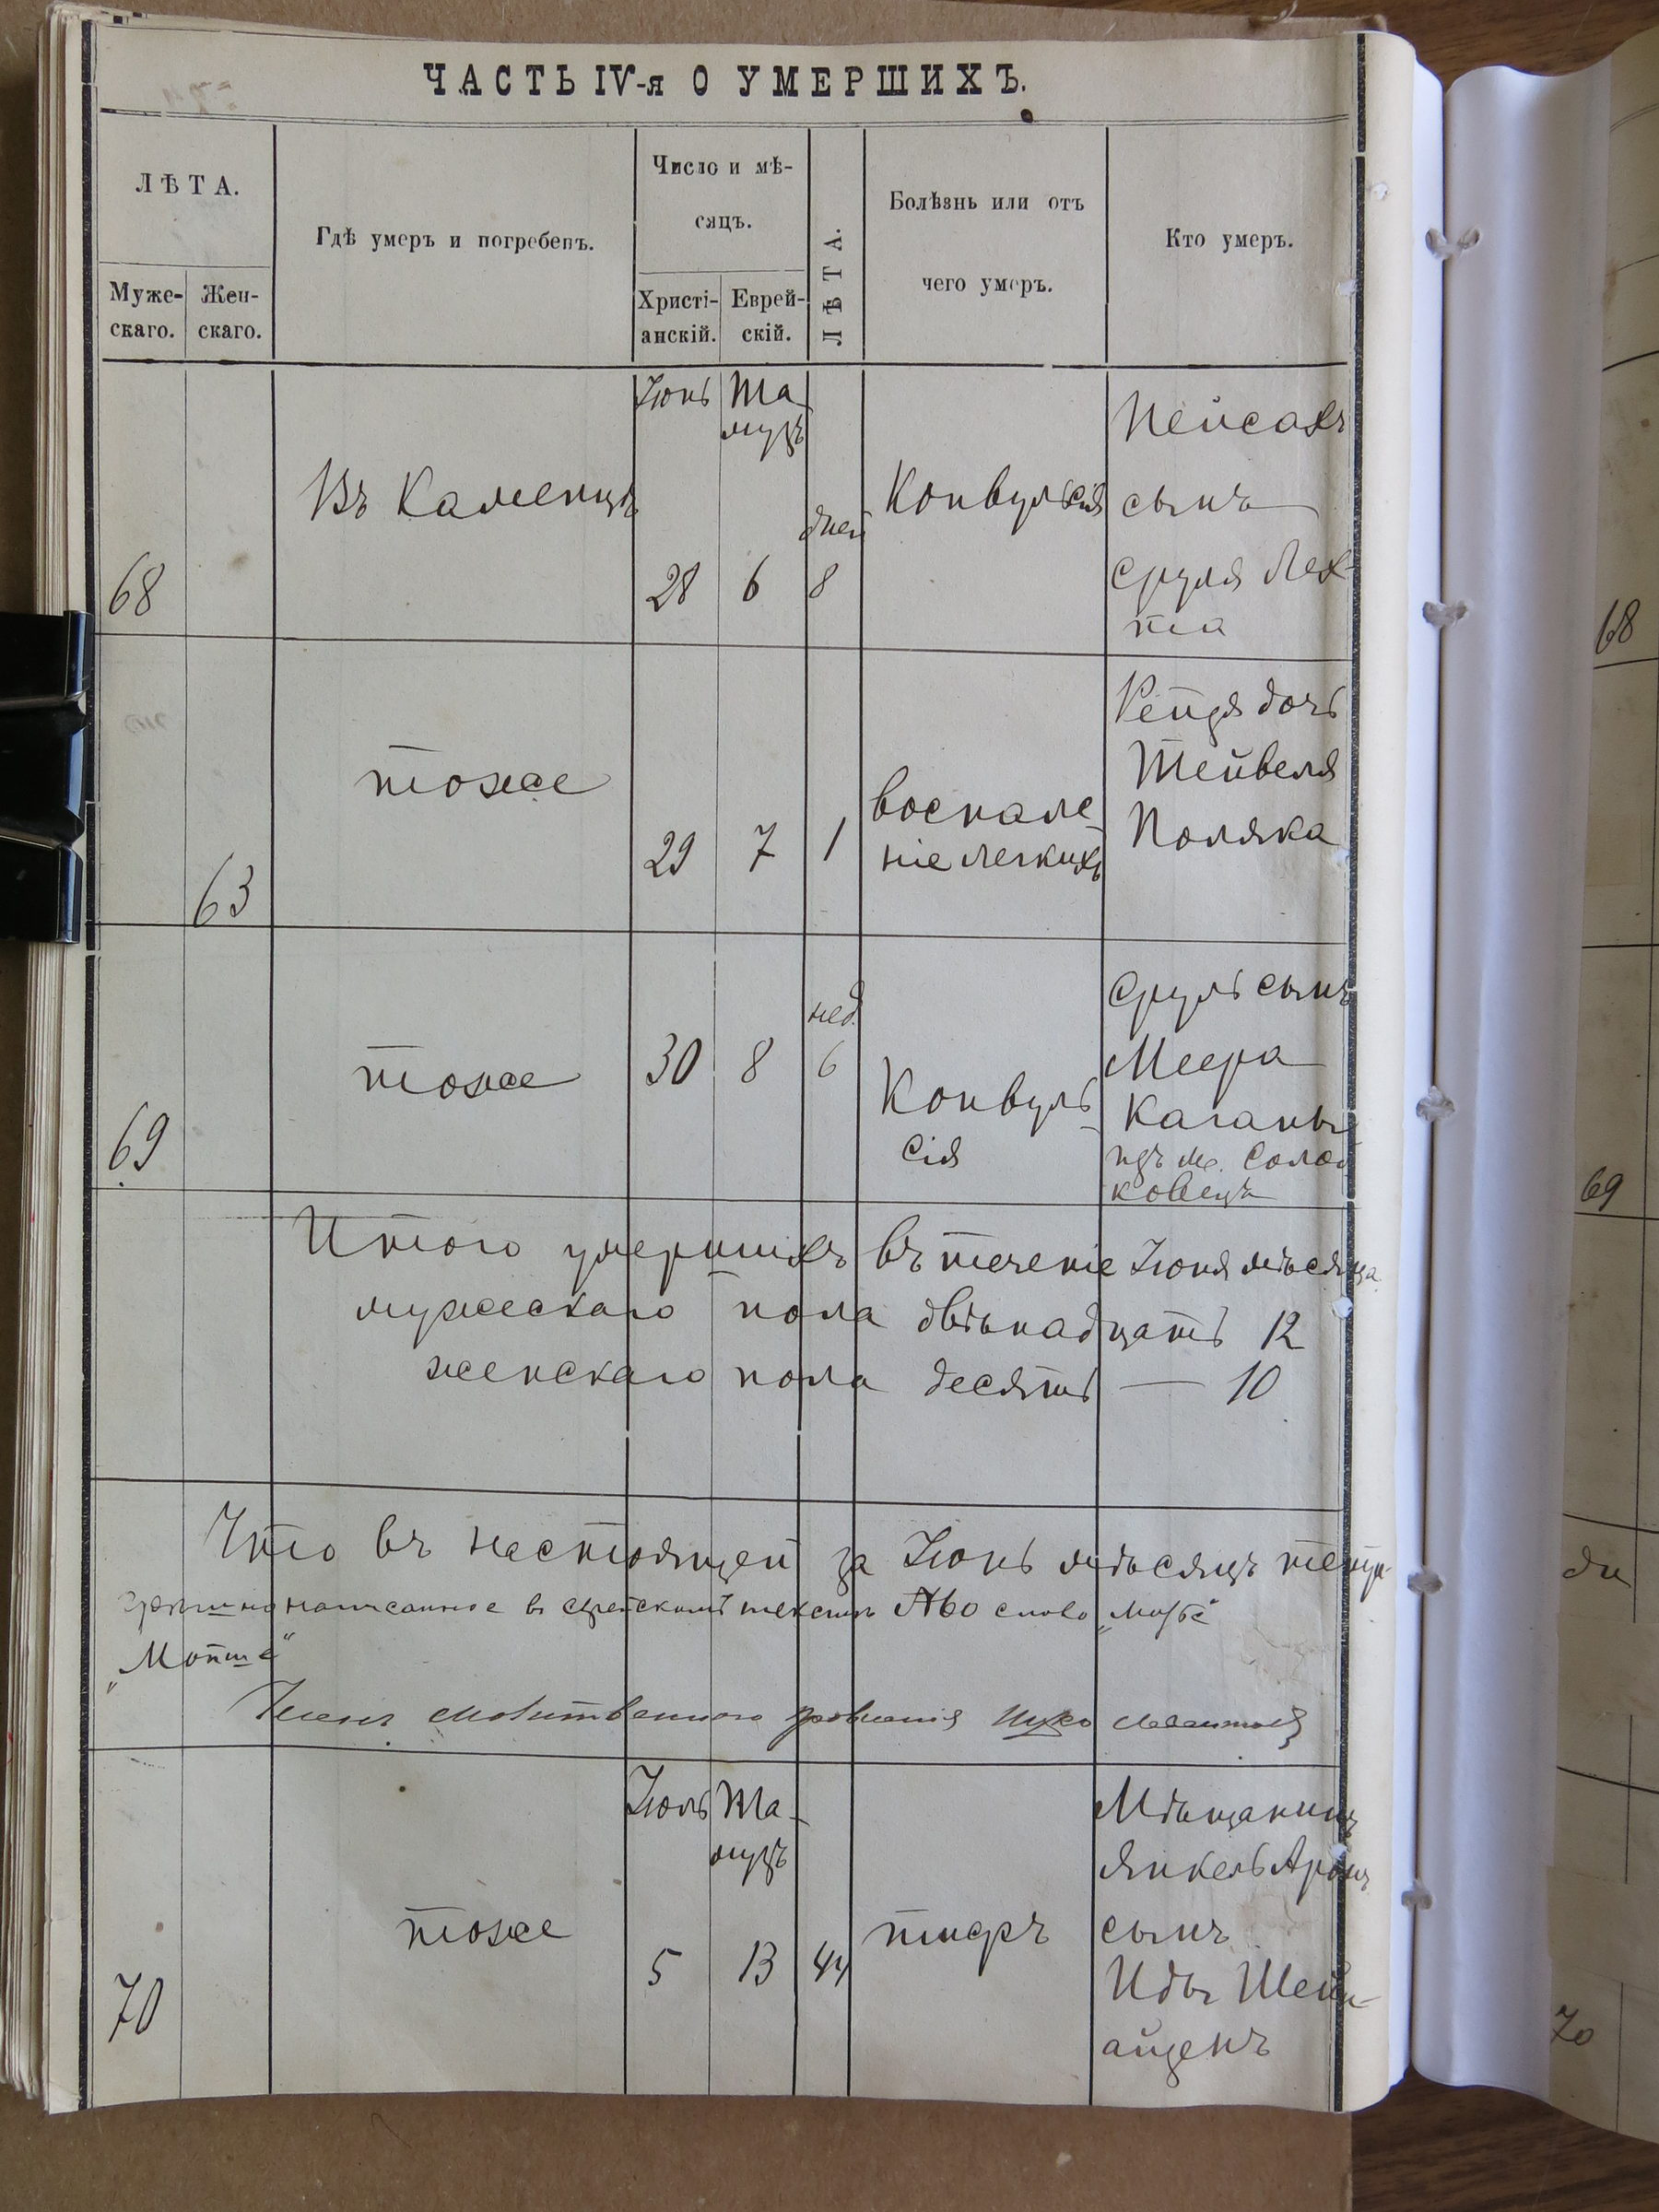 ЧАСТЬ IV-я О УМЕРШИХЪ.
ЛѢТА.
Муже-
скаго.
Жен-
скаго.
Гдѣ умеръ и погребенъ.
Число и мѣ-
сяцъ.
Христі-
анскій.
Еврей-
скій.
ЛѢТА.
Болѣзнь или отъ
чего умеръ.
Кто умеръ.
Іюнь Та
музъ
Въ Каменцѣ
68
28 6
дней
8
Конвульсія
Пейсахъ
сынъ
Сруля Лех-
та
63
тоже
29 7 1
воспале-
ніе легкихъ
Рейзя дочь
Тейвеля
Поляка
69
тоже
30 8
нед.
6
Конвуль-
сія
Сруль сынъ
Меера
Каганъ
изъ м. Солод
ковецъ
Итого умершихъ въ теченіе Іюня мѣсяца
мужескаго пола двѣнадцать 12
женскаго пола десять — 10
Что въ настоящей за Іюнь мѣсяцъ
написанное в еврейскомъ текстѣ слово
Членъ молитвеннаго правленія
Іюль Та-
музъ
70
тоже
5 13 44
тифъ
Мѣщанинъ
Янкель Аронъ
сынъ
Иды Шейн-
айзенъ
68
69
70